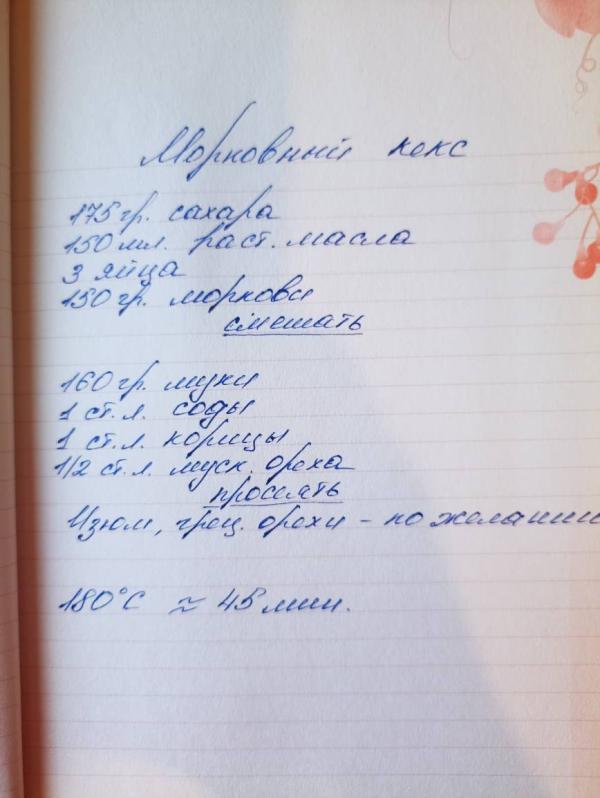 Морковный кекс
175 гр. сахара
150 мл. раст. масла
3 яйца
150 гр. моркови
смешать
160 гр. муки
1 ст. л. соды
1 ст. л. корицы
1/2 ст. л. муск. ореха
просеять
Изюм, грец. орехи – по желанию
180°C ≈ 45 мин.